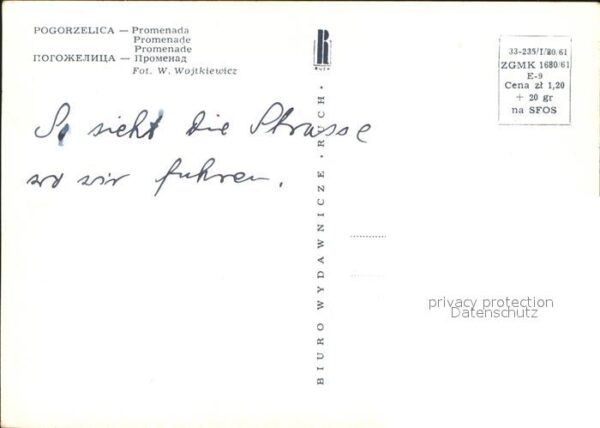 POGORZELICA — Promenada
Promenade
Promenade
ПОГОЖЕЛИЦА — Променад
Fot. W. Wojtkiewicz
33-235/I/80/61
ZGMK 1680/61
E-9
Cena zł 1,20
+ 20 gr
na SFOS
So sieht die Strasse
wo wir fuhren.
BIURO WYDAWNICZE · RUCH ·
privacy protection
Datenschutz